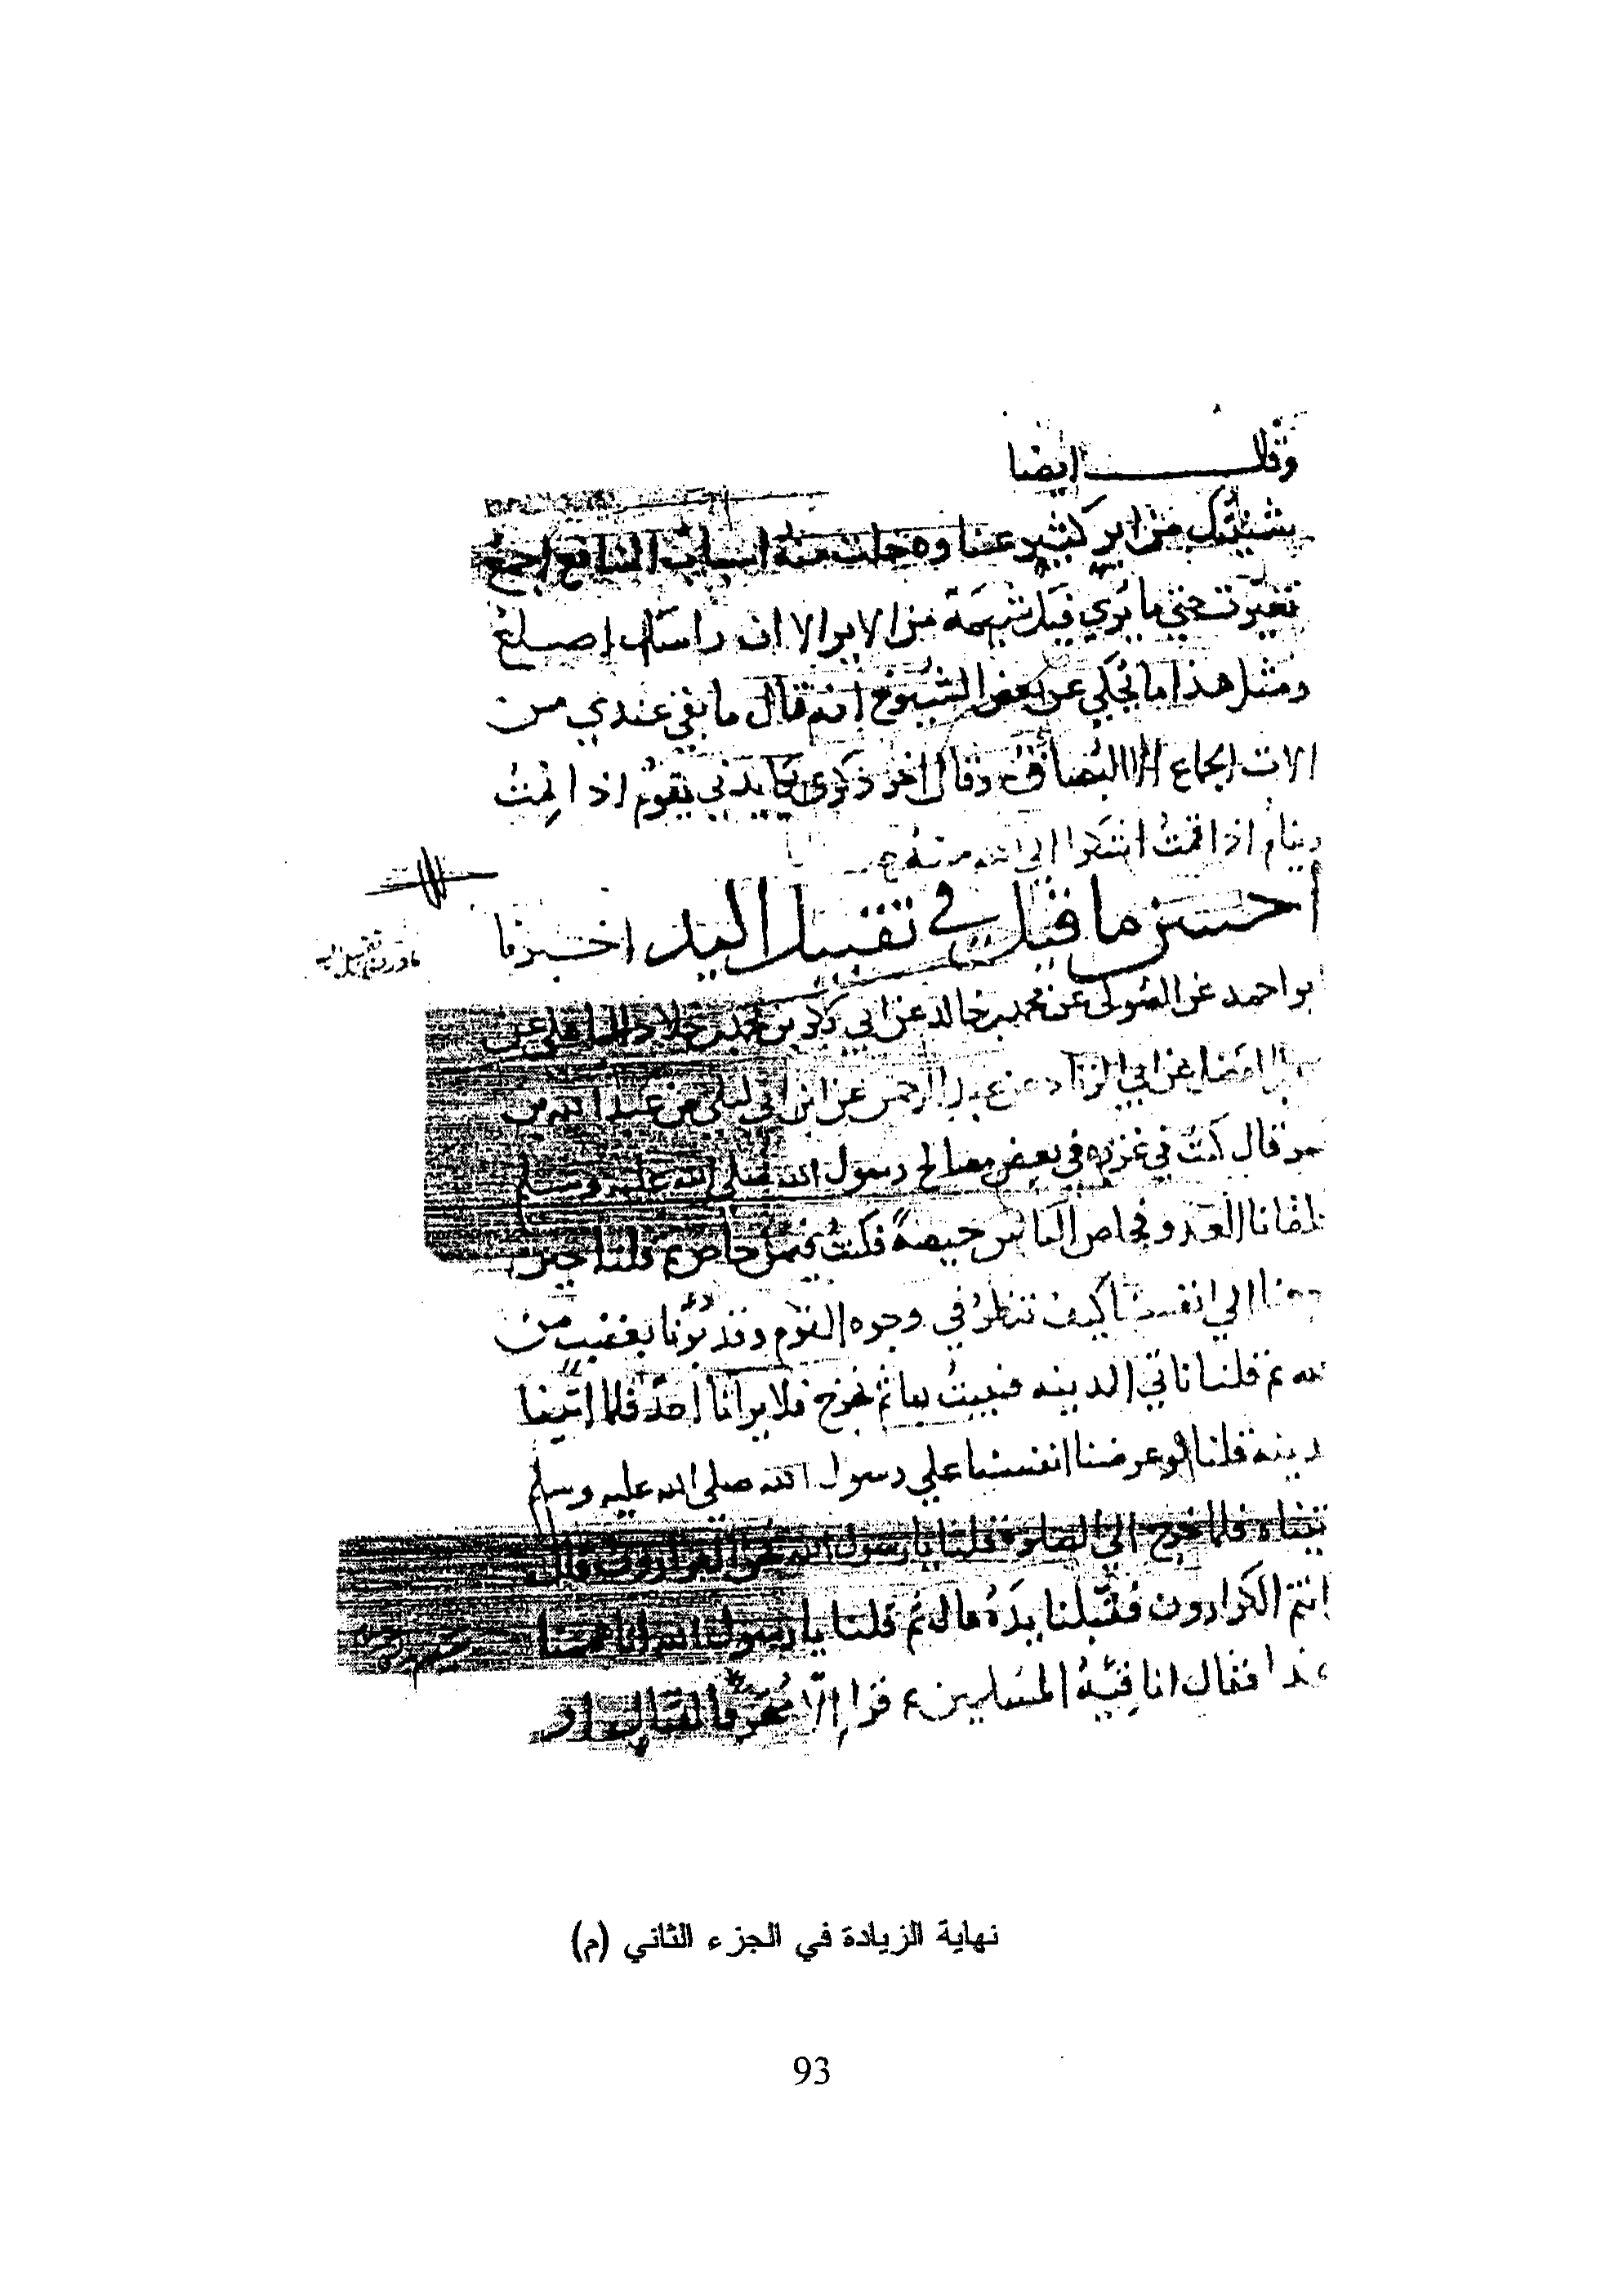 وقال ايضا
تغيرت حتى ما يرى فيك شيمة من الاير الا ان راسك اصلع
ومثل هذا ما يحكي عن بعض الشيوخ انه قال ما بقي عندي من
الات الجماع الا البصاق وقال اخر ذكري يكايدني يقوم اذا نمت
وينام اذا قمت اشكوا الى الله منه
احسن ما قيل في تقبيل اليد اخبرنا
بو احمد عن الصولي عن محمد بن خالد عن ابي
عن ابي الزناد عبد الرحمن عن ابن ابي ليلى عن عبد الله بن
مر قال كنت في غزوه في بعض مصالح رسول الله صلى الله عليه وسلم
فلقانا العدو فحاص الناس حيصة فكنت فيمن حاص ثم قلنا حين
الى انفسنا كيف ننظر في وجوه القوم وقد بؤنا بغضب من
لله ثم قلنا ناتي المدينه فنبيت بها ثم نخرج فلا يرانا احد فلما اتينا
دينة قلنا لو عرضنا انفسنا علي رسول الله صلى الله عليه وسلم
فلما خرج الي الصلوة قلنا يا رسول الله نحن الفرارون قال
انتم الكرارون فقبلنا يده قال ثم قلنا يا رسول الله انا هممنا
فقال انا فئة المسلمين قرا الا متحرفا لقتال او
نهاية الزيادة في الجزء الثاني (م)
93